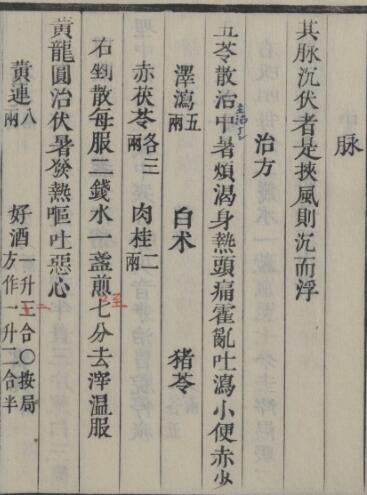 脉
其脉沉伏者是挾風則沉而浮
治方
五苓散治中暑煩渴身熱頭痛霍亂吐瀉小便赤少
澤瀉五兩 白术 猪苓
赤茯苓各三兩 肉桂二兩
右剉散每服二錢水一盞煎七分去滓温服
至
黃龍圓治伏暑發熱嘔吐惡心
黃連八兩 好酒一升五合〇按局方作一升二合半